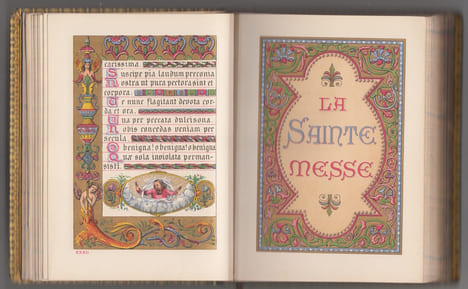 carissima.
Suscipe pia laudum preconia
Nostra ut pura pectora sint et
corpora.
Te nunc flagitant devota cor-
da et ora.
Tua per precata dulcisona.
Nobis concedas veniam per
secula
O benigna! o benigna! o benigna
Que sola inviolata perman-
sisti.
LA
SAINTE
MESSE